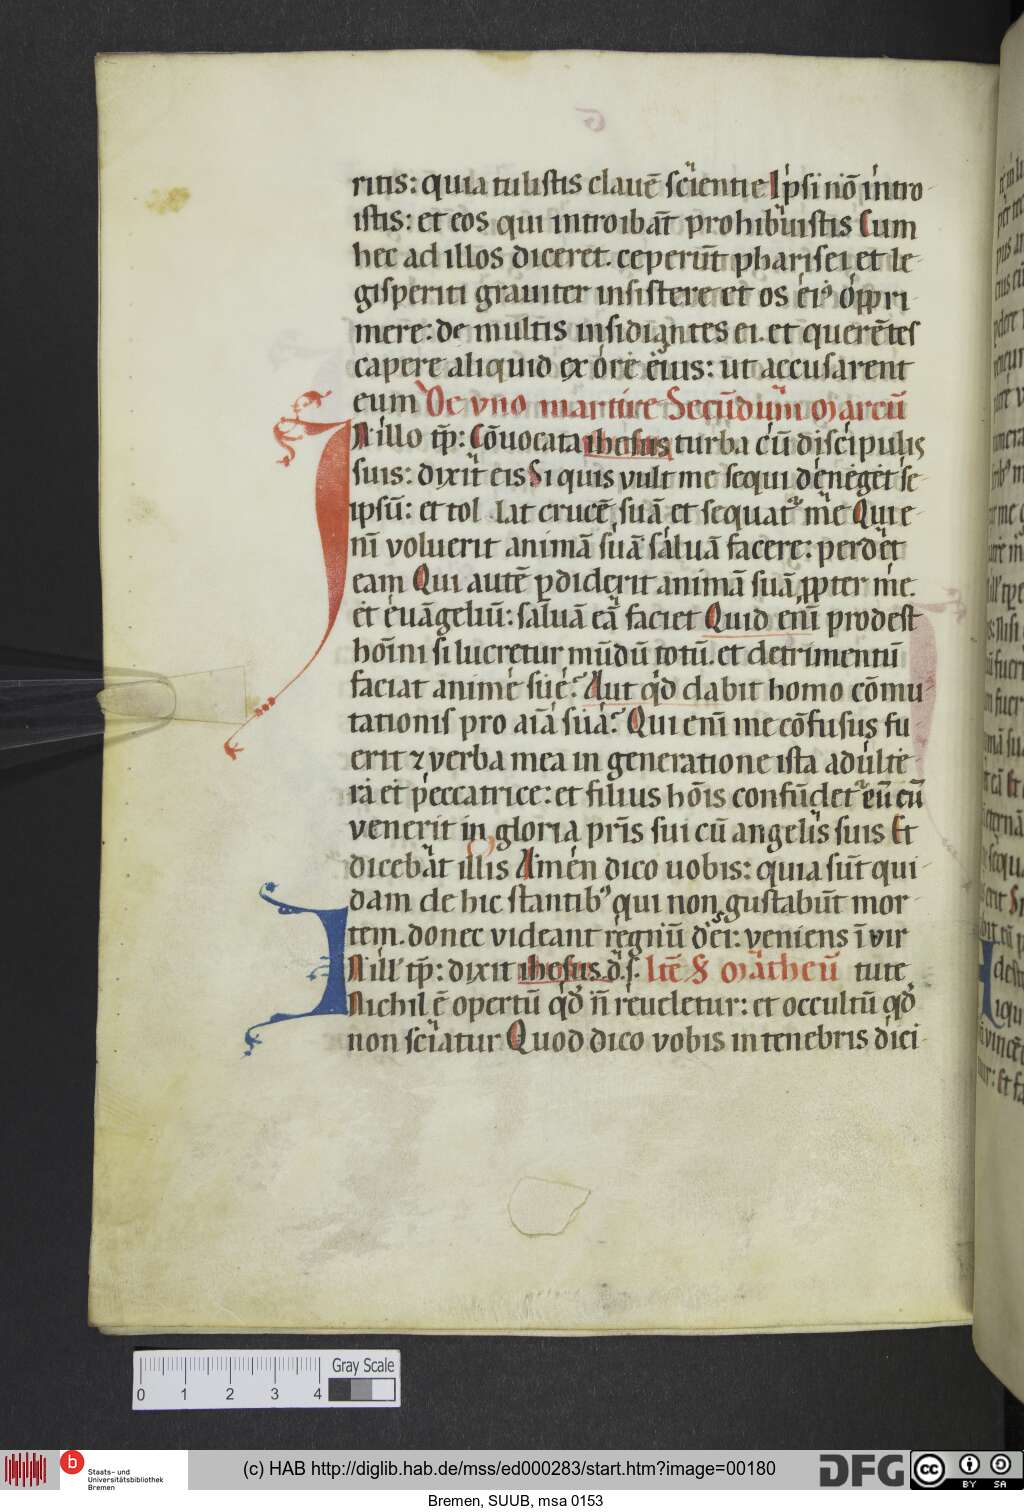 ritis: quia tulistis clauē scientie Ipsi nō intro
istis: et eos qui introibāt prohibuistis Cum
hec ad illos diceret. ceperūt pharisei et le
gisperiti grauiter insistere et os eiꝰ oꝑpri
mere: de multis insidiantes ei. et querētes
capere aliquid ex ore eius: ut accusarent
eum De vno martire Secūdum Marcū
IN illo tp̄: Cōuocata ihesus turba cū discipulis
suis: dixit eis Si quis vult me sequi deneget se
ipsū: et tollat crucē suā et sequat᷑ me Qui e
ni̅ voluerit animā suā saluā facere: perdet
eam Qui autē ꝑdiderit animā suā ꝓpter me.
et euāgeliū: saluā eā faciet Quid eni̅ prodest
hōi̅ni si lucretur mūdū totū. et detrimentū
faciat anime sue? Aut qd̄ dabit homo cōmu
tationis pro ai̅ā sua? Qui eni̅ me cōfusus fu
erit ⁊ verba mea in generatione ista adulte
ra et peccatrice: et filius hōi̅s confūdet᷑ eū cū
venerit in gloria pri̅s sui cū angelis suis Et
dicebat illis Amen dico uobis: quia sūt qui
dam de hic stantibꝰ qui non gustabūt mor
tem. donec videant regnū dei: veniens ī vir
IN ill' tp̄: dixit ihesus. d. s. Itē S Matheū tute
Nichil ē opertū qd̄ n̄ reueletur: et occultū qd̄
non sciatur Quod dico vobis in tenebris dici
0 1 2 3 4 Gray Scale
b
Staats- und
Universitätsbibliothek
Bremen
(c) HAB http://diglib.hab.de/mss/ed000283/start.htm?image=00180
DFG
cc BY SA
Bremen, SUUB, msa 0153